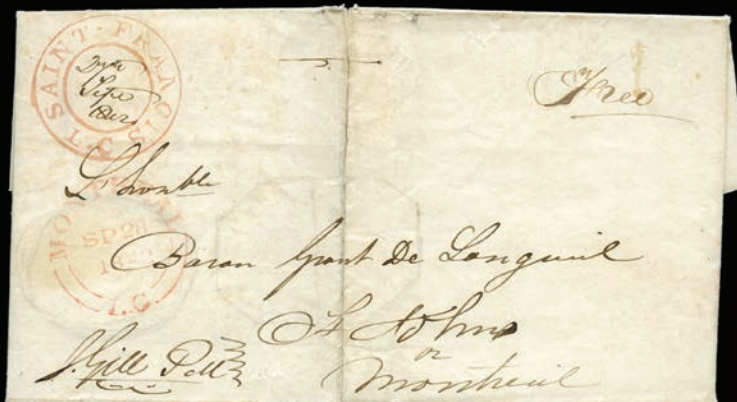 SAINT-FRANCIS L.C
Free
L'honble
MONTREAL L.C.
SP 28
Baron Grant De Longueuil
St Johns
or
Montreal
J. Gill P.M